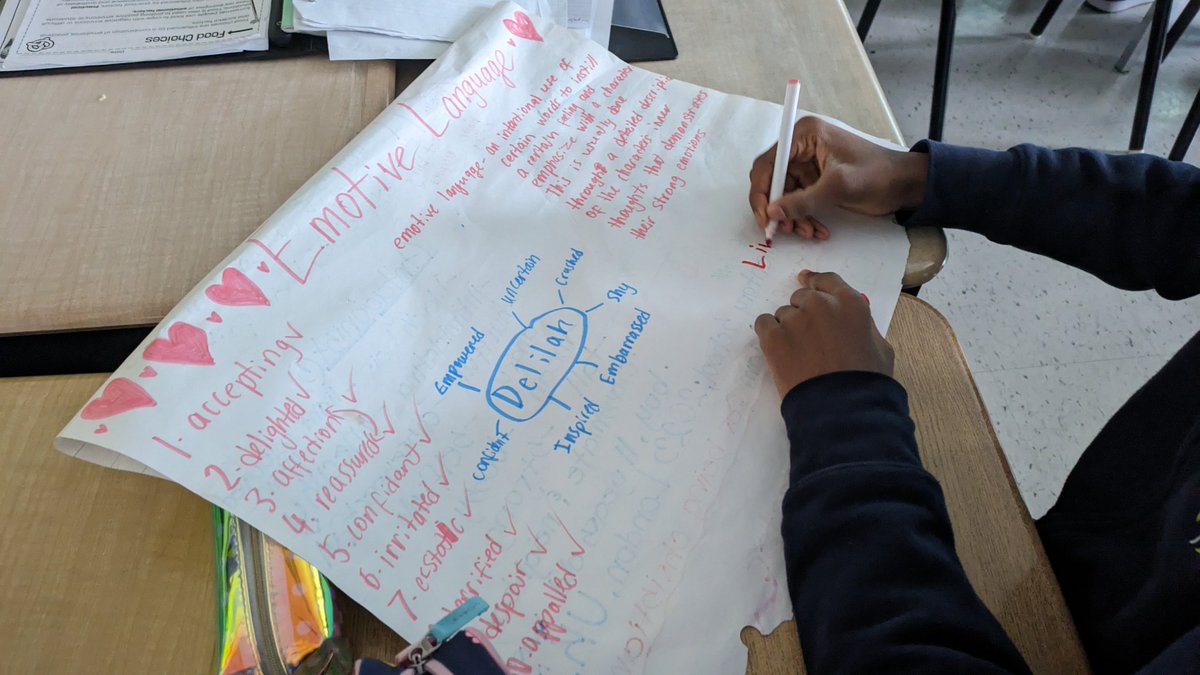 Food Choices
Emotive Language
emotive language - an intentional use of
certain words to instill
a certain feeling and
empasize with a character
This is usually done
through a detailed descripti
of the characters inner
thoughts that demonstrates
their strong emotions
1. accepting
2. delighted
3. affection
4. reassured
5. confidant
6. irritated
7. ecstatic
despair
appalled
Delilah
Empowered
uncertain
crushed
shy
Embarrased
Inspired
confident
Li